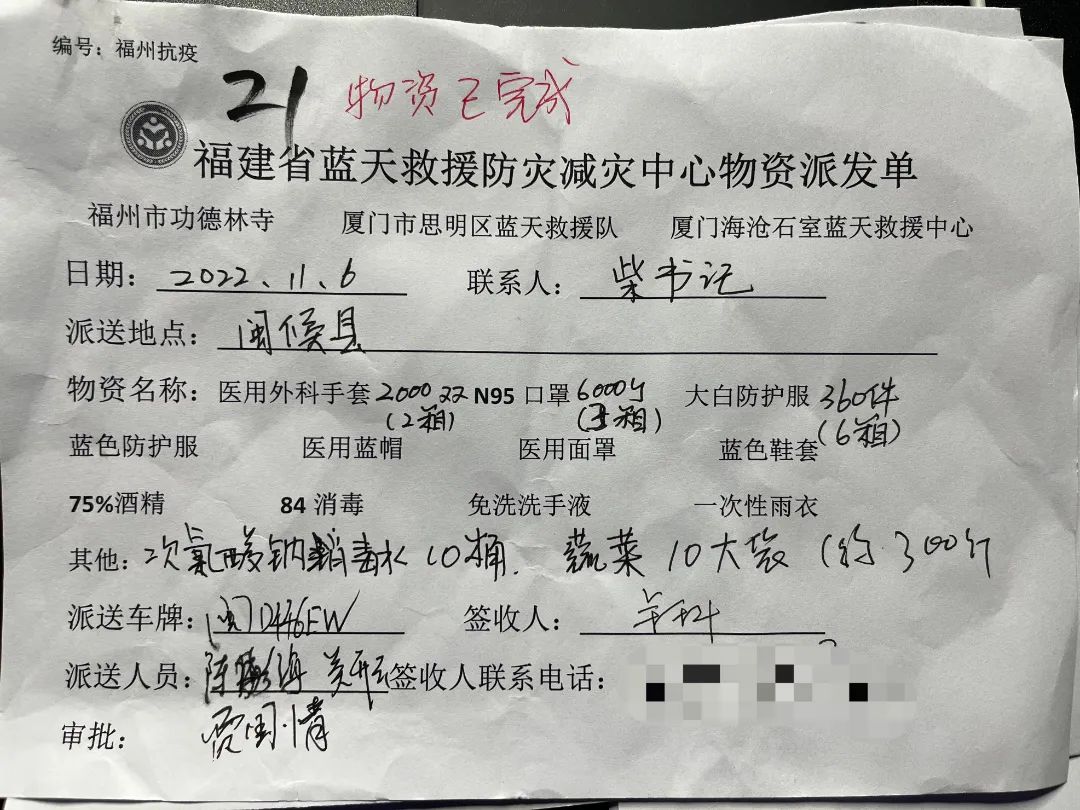 编号：福州抗疫
21 物资已完成
福建省蓝天救援防灾减灾中心物资派发单
福州市功德林寺 厦门市思明区蓝天救援队 厦门海沧石室蓝天救援中心
日期：2022、11、6 联系人：柴书记
派送地点：闽侯县
物资名称：医用外科手套2000双 N95 口罩6000个 大白防护服 360件
(2箱) (箱) (6箱)
蓝色防护服 医用蓝帽 医用面罩 蓝色鞋套
75%酒精 84 消毒 免洗洗手液 一次性雨衣
其他：次氯酸钠消毒水10桶. 蔬菜 10大袋 (约300斤
派送车牌：闽D476EW 签收人：
派送人员：陈 海 签收人联系电话：
审批：贾国情